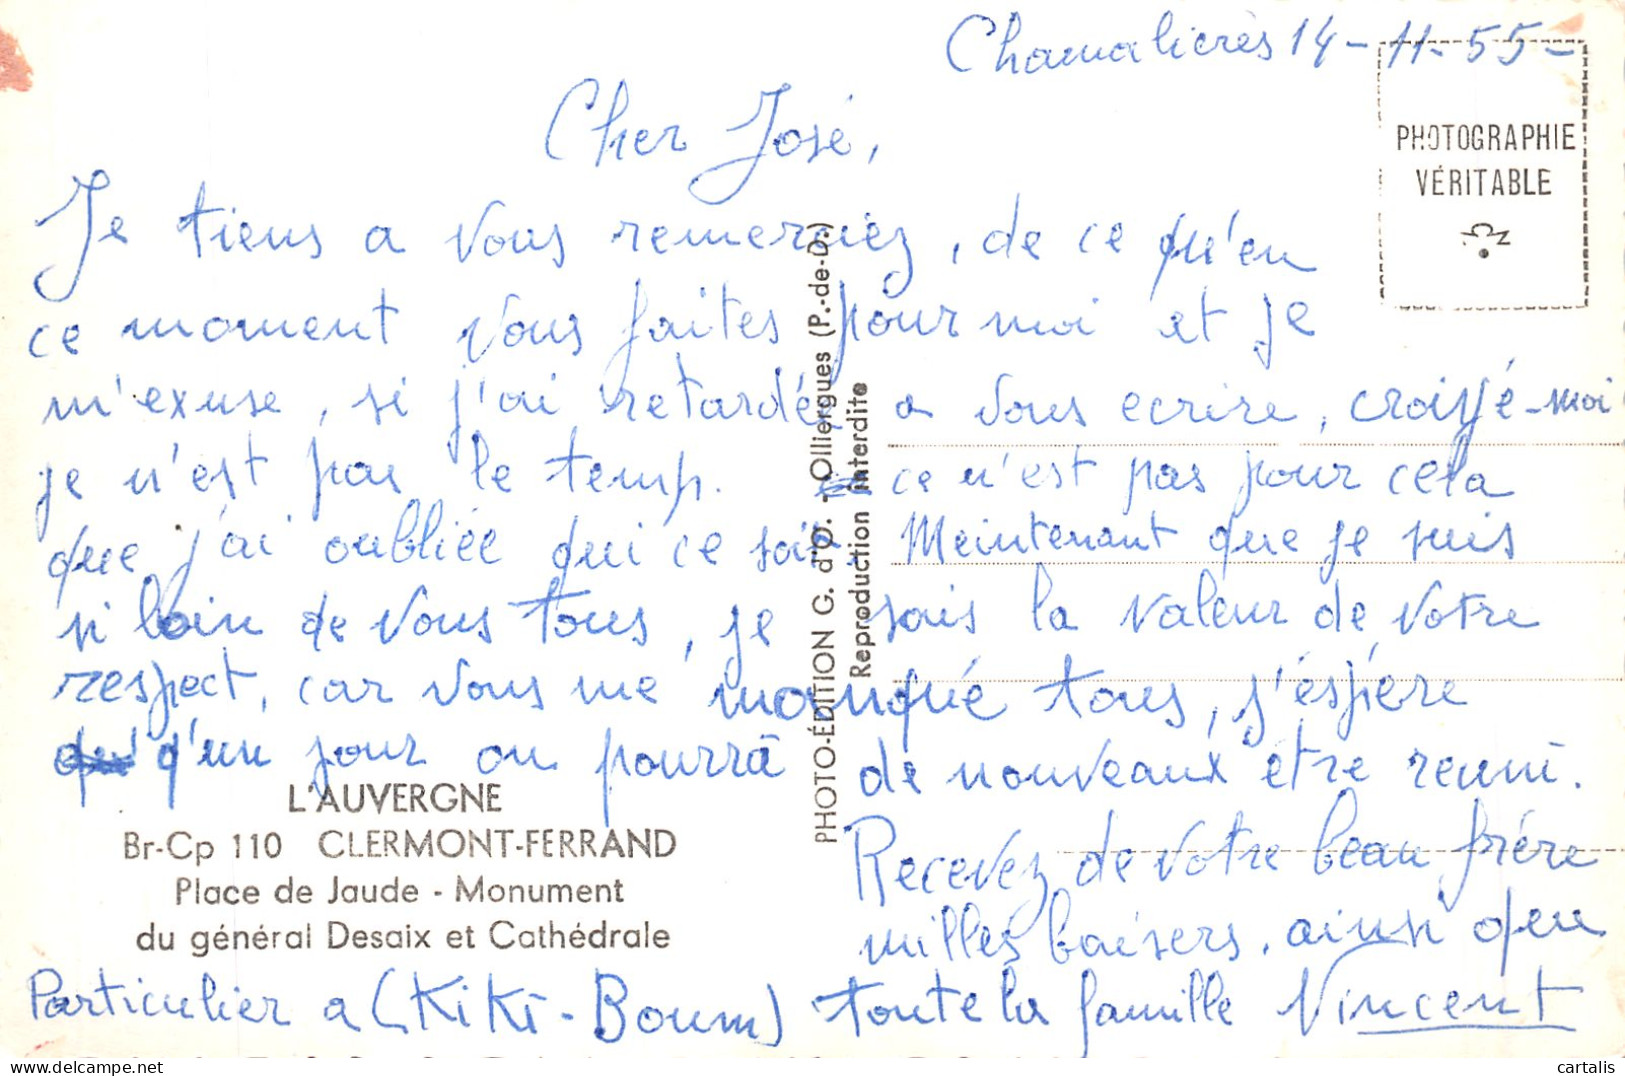 Chamalières 14-11-55-
PHOTOGRAPHIE
VÉRITABLE
Cher José,
Je tiens a vous remerciez, de ce qu'en
ce moment vous faites pour moi et je
m'exuse, si j'ai retardée a vous ecrire, croiyé-moi
je n'est pas le temp. ce n'est pas pour cela
que j'ai oubliée qui ce soit. Meintenant que je suis
si loin de vous tous, je sais la valeur de votre
respect, car vous me manqué tous, j'éspére
qu'un jour on pourra de nouveaux être reuni.
Recevez de votre beau frére
milles baisers, ainsi qu'en
Particulier a (KiKi-Boum) toute la famille Vincent
L'AUVERGNE
Br-Cp 110 CLERMONT-FERRAND
Place de Jaude - Monument
du général Desaix et Cathédrale
PHOTO-ÉDITION G. d'O. - Olliergues (P.-de-D.)
Reproduction interdite
cartalis